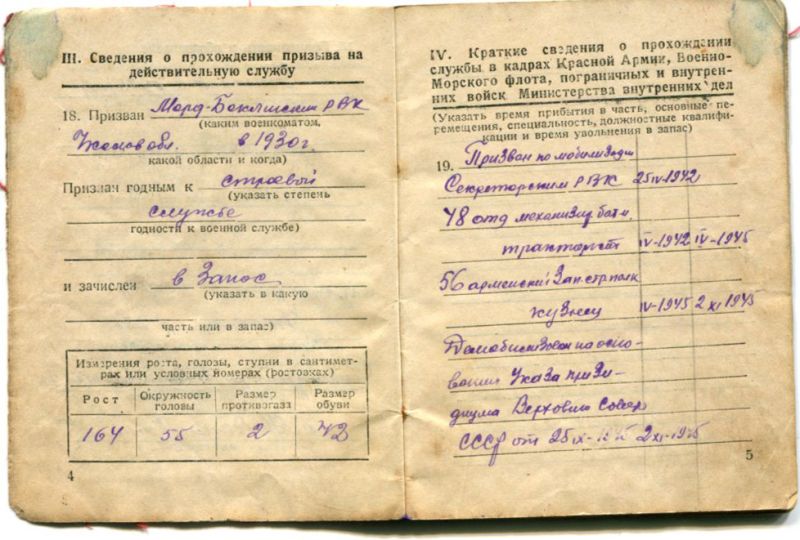 III. Сведения о прохождении призыва на
действительную службу
18. Призван Морд-Боклинским РВК
(каким военкоматом,
обл. в 1930 г.
какой области и когда)
Признан годным к строевой
(указать степень
службе
годности к военной службе)
и зачислен в Запас
(указать в какую
часть или в запас)
Измерения роста, головы, ступни в сантимет-
рах или условных номерах (ростовках)
Рост Окружность головы Размер противогаза Размер обуви
164 55 2 42
4
IV. Краткие сведения о прохождении
службы в кадрах Красной Армии, Военно-
Морского флота, пограничных и внутрен-
них войск Министерства внутренних дел
(Указать время прибытия в часть, основные пе-
ремещения, специальность, должностные квалифи-
кации и время увольнения в запас)
19. Призван по мобилизации
Секретарским РВК 25 IV-1942
48 отд механизир. батл.
тракторист IV-1942 IV-1945
56 армейский Зап стр полк
кузнец IV-1945 2 XI 1945
Демобилизован на осно-
вании Указа прези-
диума Верховнго Совета
СССР от 25 IX-1945 2 XI-1945
5